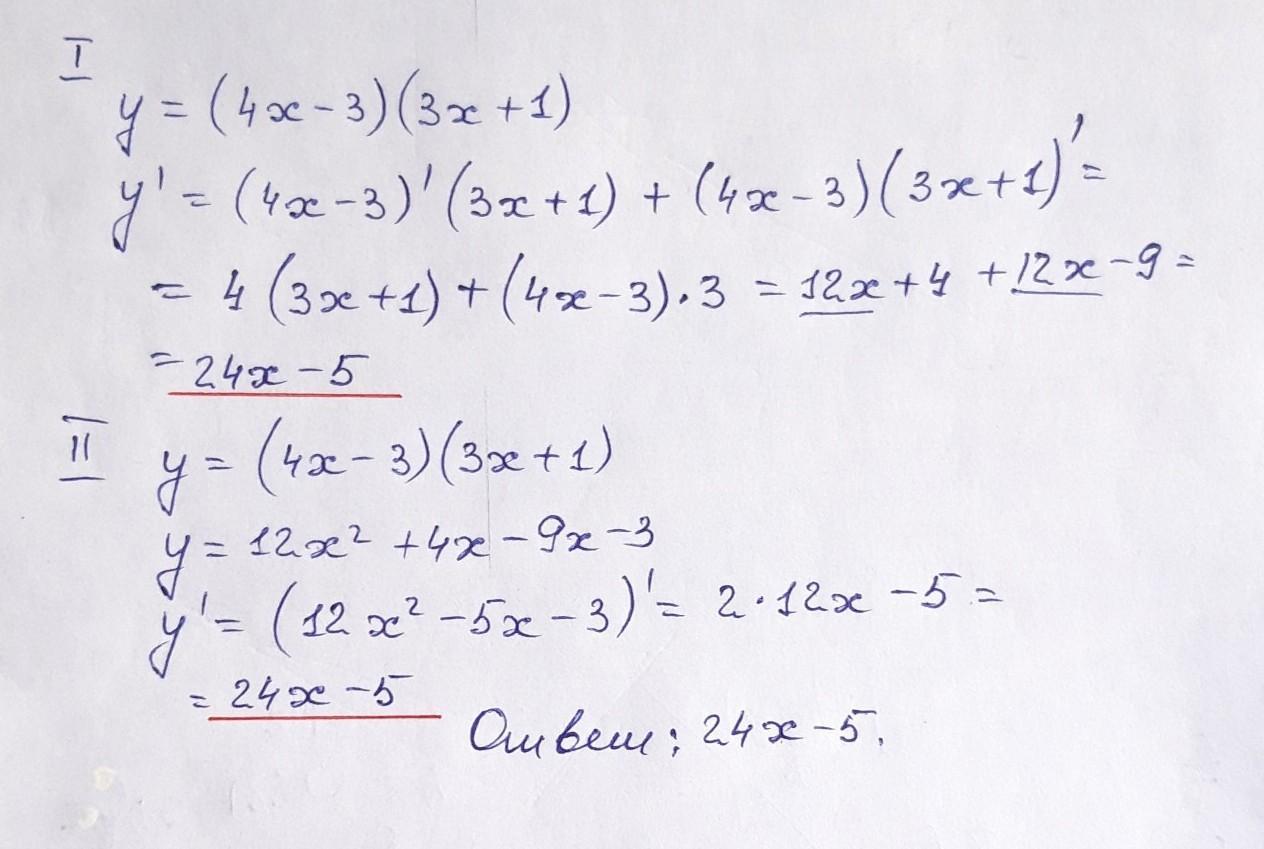 I
y = (4x-3)(3x+1)
y' = (4x-3)'(3x+1) + (4x-3)(3x+1)' =
= 4(3x+1) + (4x-3)·3 = 12x+4 +12x-9 =
= 24x-5
II y = (4x-3)(3x+1)
y = 12x² +4x-9x-3
y' = (12x²-5x-3)' = 2·12x-5 =
= 24x-5
Ответ: 24x-5.